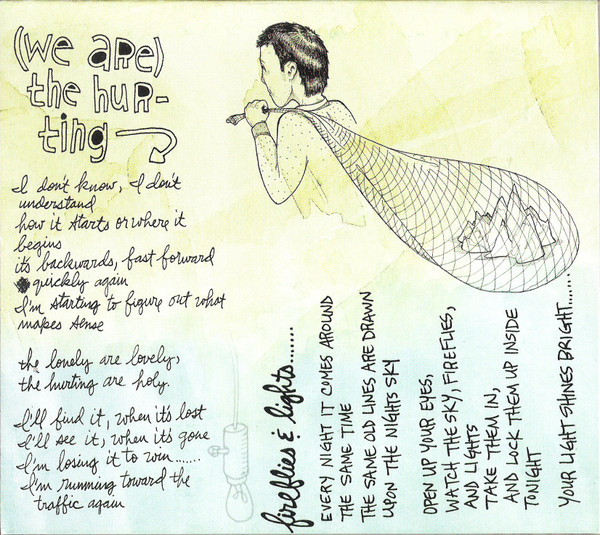 (we are)
the hur-
ting
I don't know, I don't
understand
how it starts or where it
begins
its backwards, fast forward
quickly again
I'm starting to figure out what
makes sense
the lonely are lovely,
the hurting are holy.
I'll find it, when it's lost
I'll see it, when it's gone
I'm losing it to win........
I'm running toward the
traffic again
fireflies & lights.......
EVERY NIGHT IT COMES AROUND
THE SAME TIME
THE SAME OLD LINES ARE DRAWN
UPON THE NIGHTS SKY
OPEN UP YOUR EYES,
WATCH THE SKY, FIREFLIES,
AND LIGHTS
TAKE THEM IN,
AND LOCK THEM UP INSIDE
TONIGHT
YOUR LIGHT SHINES BRIGHT.......